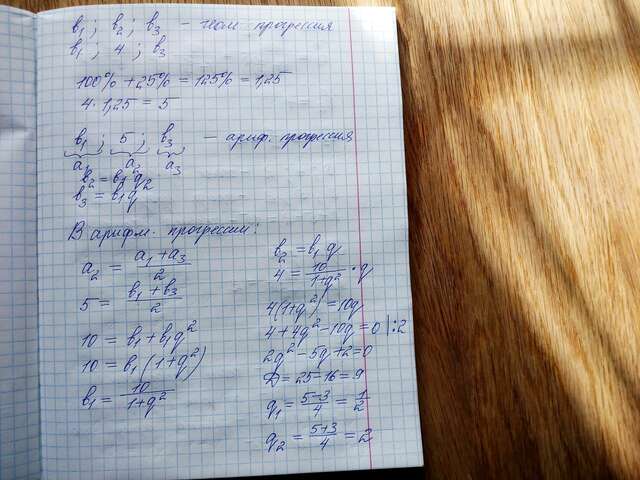 b₁; b₂; b₃ - геом. прогрессия
b₁; 4; b₃
100% + 25% = 125% = 1,25
4·1,25 = 5
b₁; 5; b₃, - ариф. прогрессия
a₁ a₂ a₃
b₂ = b₁q²
b₃ = b₁q
В арифм. прогрессии:
a₂ = (a₁ + a₃)/2
5 = (b₁ + b₃)/2
10 = b₁ + b₁q²
10 = b₁(1+q²)
b₁ = 10/(1+q²)
b₂ = b₁q
4 = 10/(1+q²) · q
4(1+q²) = 10q
4 + 4q² - 10q = 0 |:2
2q² - 5q + 2 = 0
D = 25 - 16 = 9
q₁ = (5-3)/4 = 1/2
q₂ = (5+3)/4 = 2